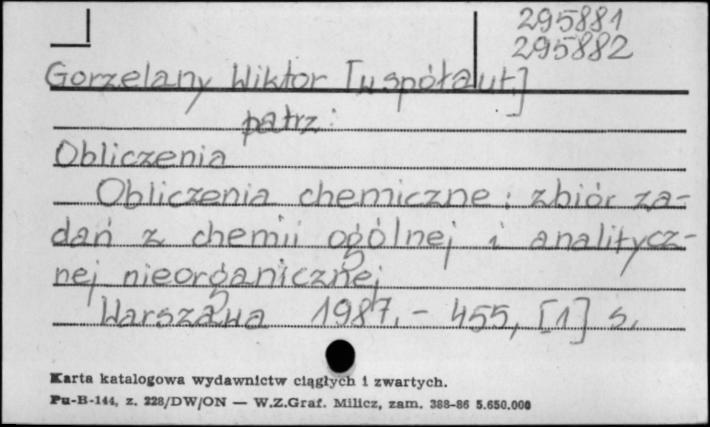 295881
295882
Gorzelany Wiktor [współaut.]
patrz:
Obliczenia
Obliczenia chemiczne : zbiór za-
dań z chemii ogólnej i analitycz-
nej nieorganicznej
Warszawa 1987. - 455, [1] s.
Karta katalogowa wydawnictw ciągłych i zwartych.
Pu-B-144, z. 228/DW/ON — W.Z.Graf. Milicz, zam. 388-86 5.650.000